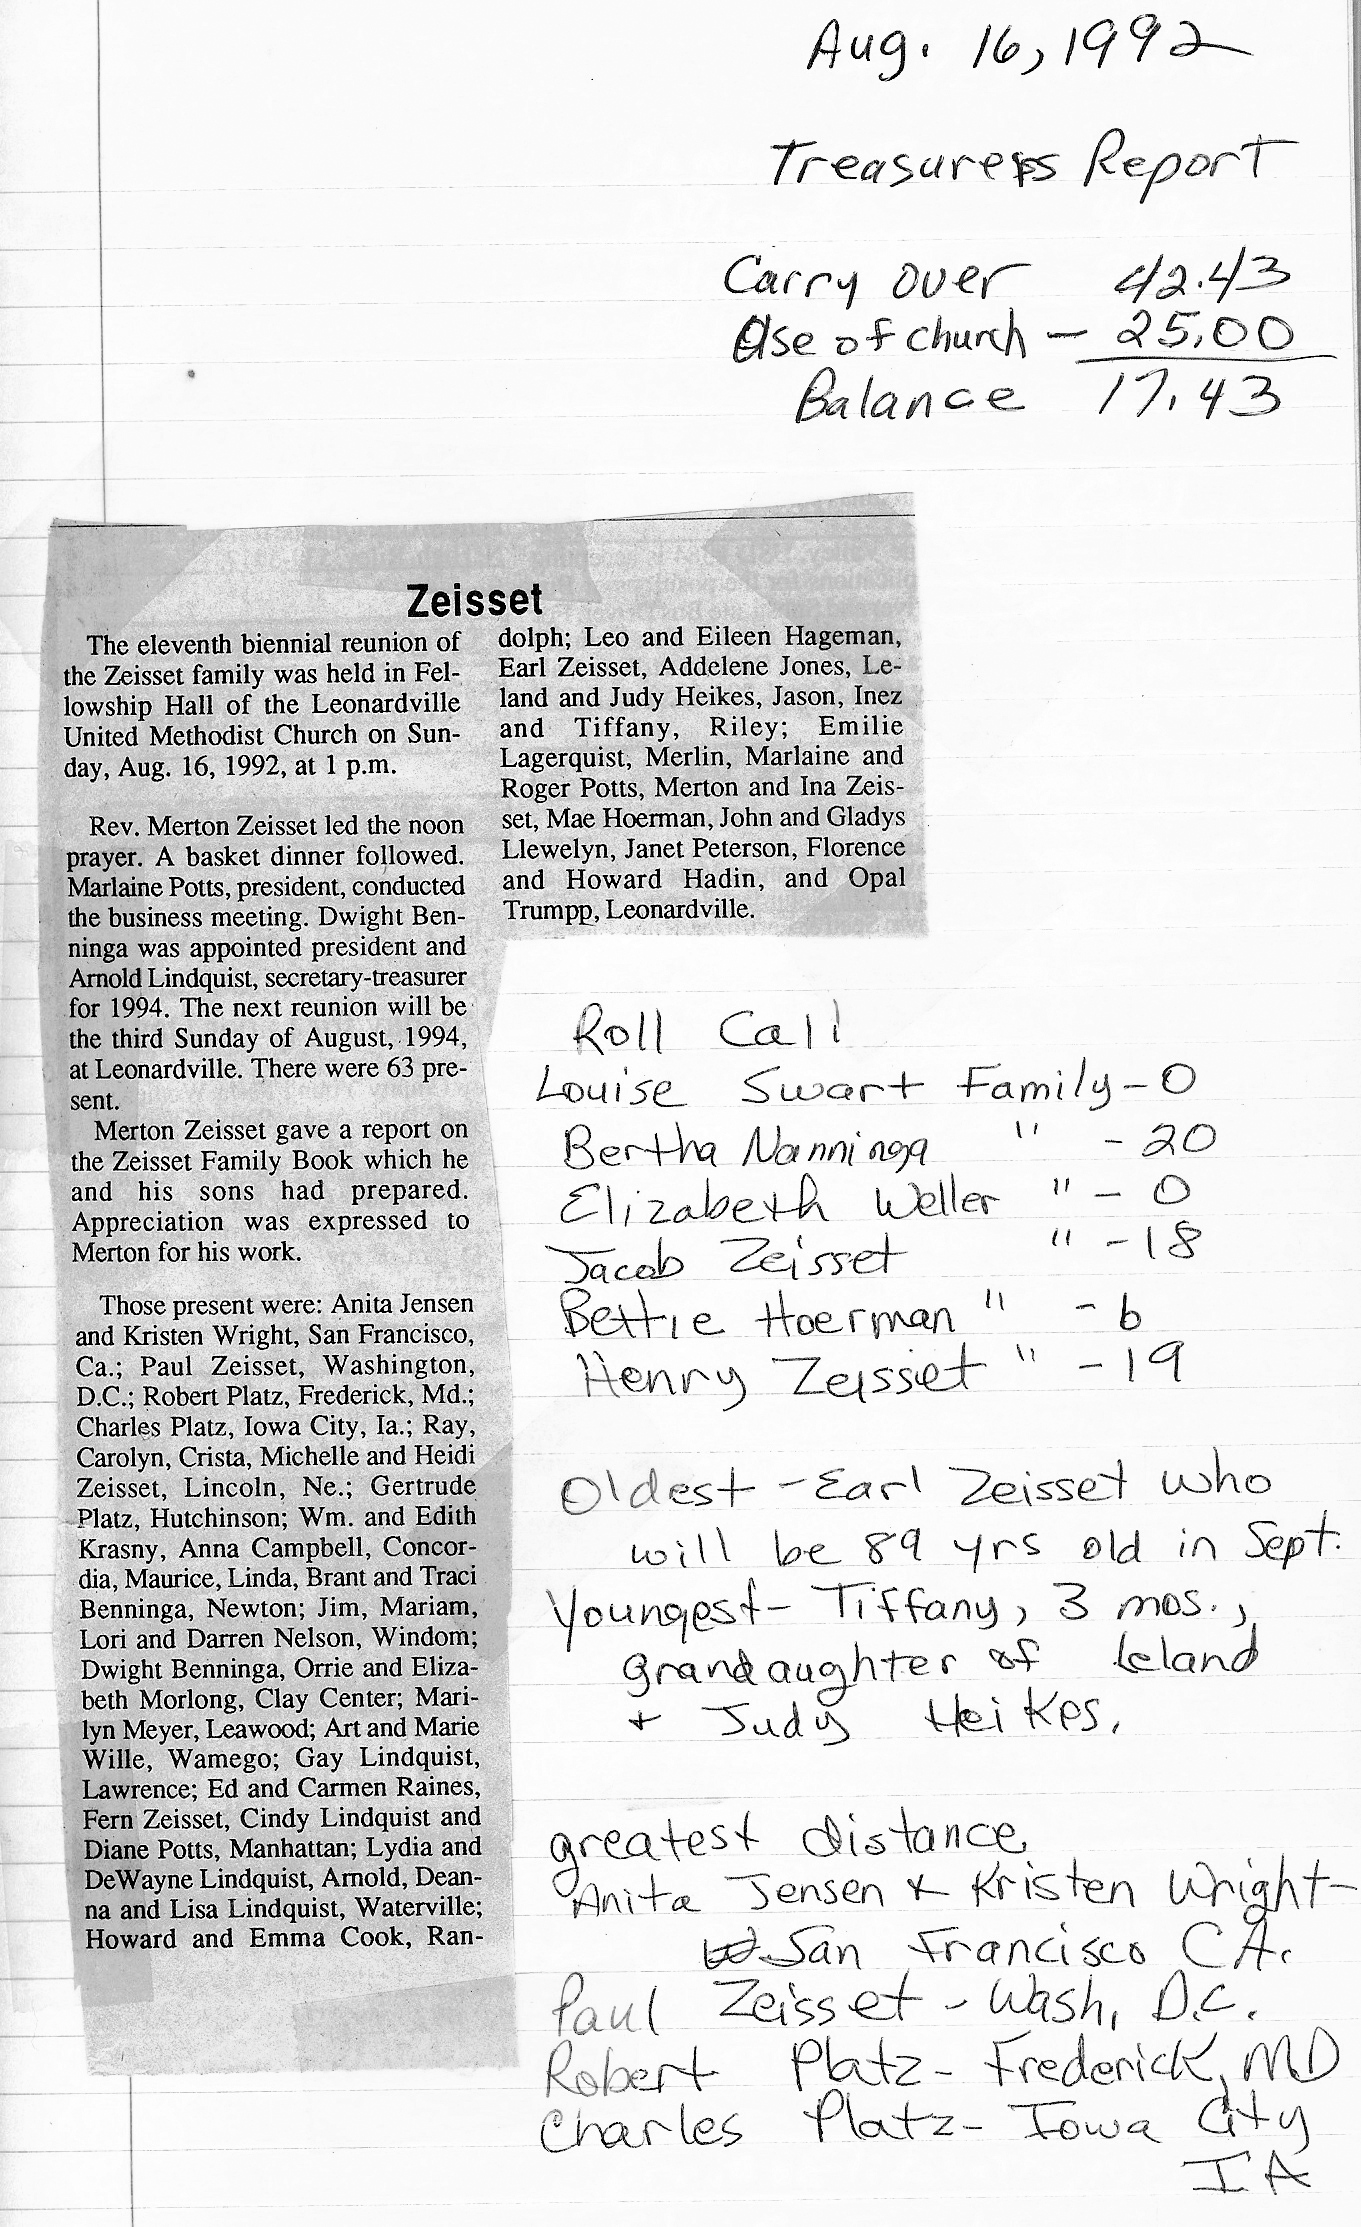 Aug. 16, 1992
Treasurers Report
Carry over 42.43
Use of church - 25.00
Balance 17.43
Zeisset
The eleventh biennial reunion of
the Zeisset family was held in Fel-
lowship Hall of the Leonardville
United Methodist Church on Sun-
day, Aug. 16, 1992, at 1 p.m.
Rev. Merton Zeisset led the noon
prayer. A basket dinner followed.
Marlaine Potts, president, conducted
the business meeting. Dwight Ben-
ninga was appointed president and
Arnold Lindquist, secretary-treasurer
for 1994. The next reunion will be
the third Sunday of August, 1994,
at Leonardville. There were 63 pre-
sent.
Merton Zeisset gave a report on
the Zeisset Family Book which he
and his sons had prepared.
Appreciation was expressed to
Merton for his work.
Those present were: Anita Jensen
and Kristen Wright, San Francisco,
Ca.; Paul Zeisset, Washington,
D.C.; Robert Platz, Frederick, Md.;
Charles Platz, Iowa City, Ia.; Ray,
Carolyn, Crista, Michelle and Heidi
Zeisset, Lincoln, Ne.; Gertrude
Platz, Hutchinson; Wm. and Edith
Krasny, Anna Campbell, Concor-
dia, Maurice, Linda, Brant and Traci
Benninga, Newton; Jim, Mariam,
Lori and Darren Nelson, Windom;
Dwight Benninga, Orrie and Eliza-
beth Morlong, Clay Center; Mari-
lyn Meyer, Leawood; Art and Marie
Wille, Wamego; Gay Lindquist,
Lawrence; Ed and Carmen Raines,
Fern Zeisset, Cindy Lindquist and
Diane Potts, Manhattan; Lydia and
DeWayne Lindquist, Arnold, Dean-
na and Lisa Lindquist, Waterville;
Howard and Emma Cook, Ran-
dolph; Leo and Eileen Hageman,
Earl Zeisset, Addelene Jones, Le-
land and Judy Heikes, Jason, Inez
and Tiffany, Riley; Emilie
Lagerquist, Merlin, Marlaine and
Roger Potts, Merton and Ina Zeis-
set, Mae Hoerman, John and Gladys
Llewelyn, Janet Peterson, Florence
and Howard Hadin, and Opal
Trumpp, Leonardville.
Roll Call
Louise Swart Family - 0
Bertha Nanninga " - 20
Elizabeth Weller " - 0
Jacob Zeisset " - 18
Bettie Hoerman " - 6
Henry Zeisset " - 19
Oldest - Earl Zeisset who
will be 89 yrs old in Sept.
Youngest - Tiffany, 3 mos.,
grandaughter of Leland
+ Judy Heikes.
greatest distance
Anita Jensen + Kristen Wright -
San Francisco CA.
Paul Zeisset - Wash, D.C.
Robert Platz - Frederick, MD
Charles Platz - Iowa City
IA